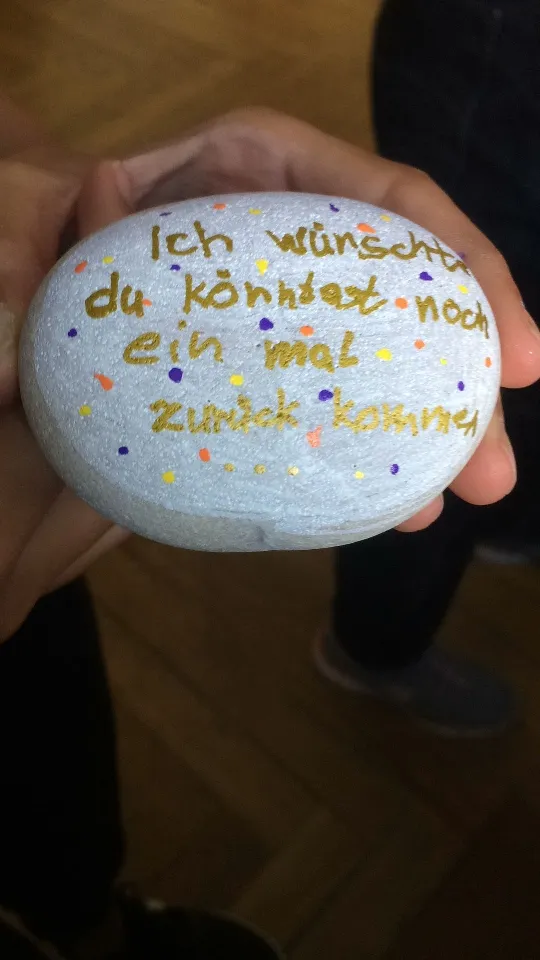 Ich wünschte
du könntest noch
ein mal
zurück kommen
....